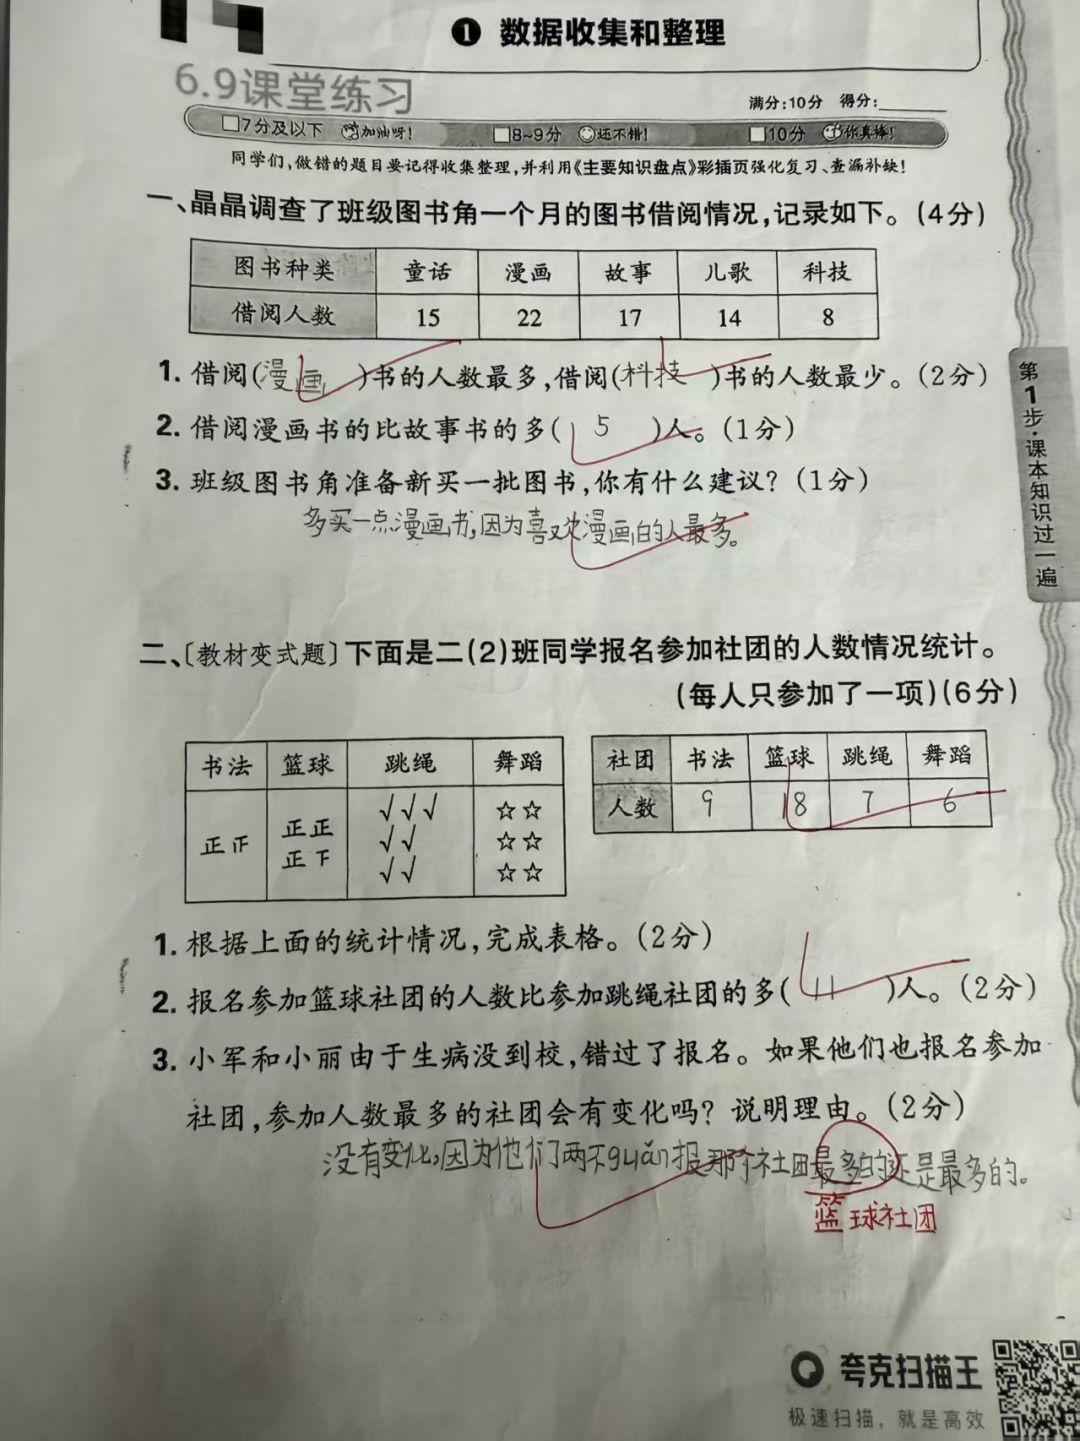 ❶ 数据收集和整理
6.9课堂练习
满分:10分 得分:______
□7分及以下 加油呀! □8~9分 还不错! □10分 你真棒!
同学们,做错的题目要记得收集整理,并利用《主要知识盘点》彩插页强化复习、查漏补缺!
一、晶晶调查了班级图书角一个月的图书借阅情况,记录如下。(4分)
图书种类 童话 漫画 故事 儿歌 科技
借阅人数 15 22 17 14 8
1. 借阅(漫画)书的人数最多,借阅(科技)书的人数最少。(2分)
2. 借阅漫画书的比故事书的多(5)人。(1分)
3. 班级图书角准备新买一批图书,你有什么建议?(1分)
多买一点漫画书,因为喜欢漫画的人最多。
第1步·课本知识过一遍
二、〔教材变式题〕下面是二(2)班同学报名参加社团的人数情况统计。
(每人只参加了一项)(6分)
书法 篮球 跳绳 舞蹈
正正 正正 √√√ ☆☆
√√ ☆☆
正下 √√ ☆☆
社团 书法 篮球 跳绳 舞蹈
人数 9 18 7 6
1. 根据上面的统计情况,完成表格。(2分)
2. 报名参加篮球社团的人数比参加跳绳社团的多(11)人。(2分)
3. 小军和小丽由于生病没到校,错过了报名。如果他们也报名参加
社团,参加人数最多的社团会有变化吗?说明理由。(2分)
没有变化,因为他们两不guǎn报那个社团最多的还是最多的。
篮球社团
夸克扫描王
极速扫描,就是高效